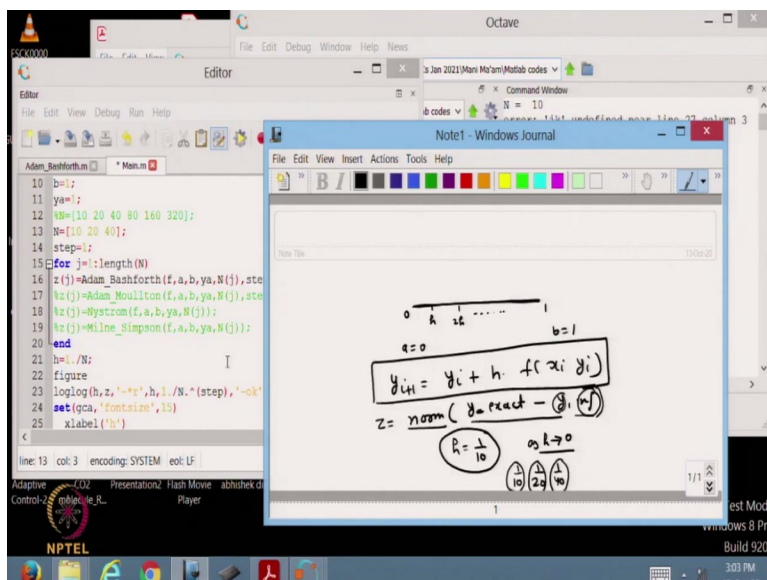 Octave
File Edit Debug Window Help News
Editor
's Jan 2021\Mani Ma'am\Matlab codes
Command Window
N = 10
Editor
File Edit View Debug Run Help
Adam_Bashforth.m
* Main.m
10 b=1;
11 ya=1;
12 %N=[10 20 40 80 160 320];
13 N=[10 20 40];
14 step=1;
15 for j=1:length(N)
16 z(j)=Adam_Bashforth(f,a,b,ya,N(j),ste
17 %z(j)=Adam_Moullton(f,a,b,ya,N(j),ste
18 %z(j)=Nystrom(f,a,b,ya,N(j));
19 %z(j)=Milne_Simpson(f,a,b,ya,N(j));
20 end
21 h=1./N;
22 figure
23 loglog(h,z,'-*r',h,1./N.^(step),'-ok'
24 set(gca,'fontsize',15)
25 xlabel('h')
line: 13 col: 3 encoding: SYSTEM eol: LF
Note1 - Windows Journal
File Edit View Insert Actions Tools Help
B I
Note Title
13-Oct-20
0 h 2h ...... 1
a=0 b=1
y_{i+1} = y_i + h. f( x_i y_i)
z= norm ( y_exact - y, inf
h = 1/10 as h→0
1/10 1/20 1/40
1/1
1
Adaptive Control-2
CO2 molecule_R...
Presentation2
Flash Movie Player
abhishek di
NPTEL
est Mod
Windows 8 Pr
Build 920
3:03 PM